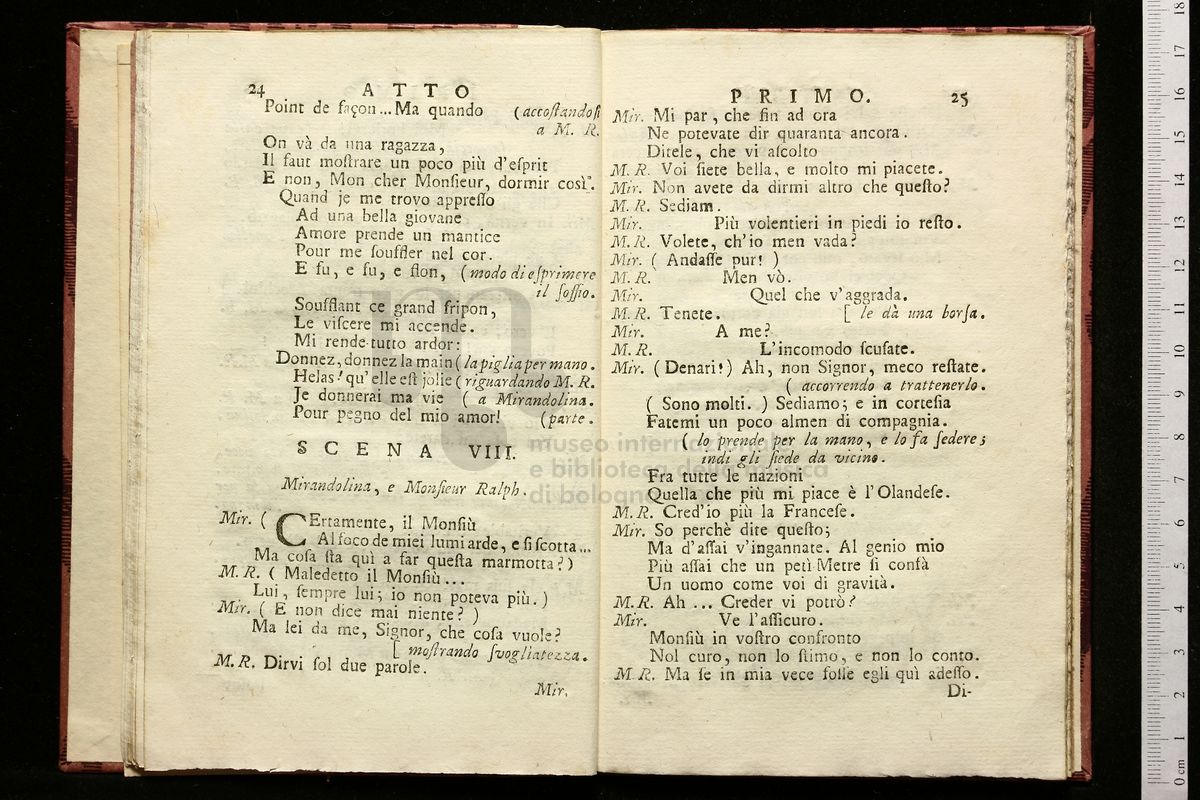 24 ATTO
Point de façon... Ma quando (accostandosi
a M. R.
On và da una ragazza,
Il faut mostrare un poco più d'esprit
E non, Mon cher Monsieur, dormir così.
Quand je me trovo appresso
Ad una bella giovane
Amore prende un mantice
Pour me souffler nel cor.
E fu, e fu, e flon, (modo di esprimere
il soffio.
Soufflant ce grand fripon,
Le viscere mi accende.
Mi rende tutto ardor:
Donnez, donnez la main (la piglia per mano.
Helas! qu'elle est jolie (riguardando M. R.
Je donnerai ma vie (a Mirandolina.
Pour pegno del mio amor! (parte.
SCENA VIII.
Mirandolina, e Monsieur Ralph.
Mir. ( CErtamente, il Monsiù
Al foco de miei lumi arde, e si scotta...
Ma cosa sta quì a far questa marmotta?)
M.R. ( Maledetto il Monsiù...
Lui, sempre lui; io non poteva più.)
Mir. ( E non dice mai niente? )
Ma lei da me, Signor, che cosa vuole?
[ mostrando svogliatezza.
M.R. Dirvi sol due parole.
Mir.
PRIMO. 25
Mir. Mi par, che fin ad ora
Ne potevate dir quaranta ancora.
Ditele, che vi ascolto
M.R. Voi siete bella, e molto mi piacete.
Mir. Non avete da dirmi altro che questo?
M.R. Sediam.
Mir. Più volentieri in piedi io resto.
M.R. Volete, ch'io men vada?
Mir. ( Andasse pur! )
M.R. Men vò.
Mir. Quel che v'aggrada.
M.R. Tenete. [ le dà una borsa.
Mir. A me?
M.R. L'incomodo scusate.
Mir. ( Denari!) Ah, non Signor, meco restate.
( accorrendo a trattenerlo.
( Sono molti. ) Sediamo; e in cortesia
Fatemi un poco almen di compagnia.
( lo prende per la mano, e lo fa sedere;
indi gli siede da vicino.
Fra tutte le nazioni
Quella che più mi piace è l'Olandese.
M.R. Cred'io più la Francese.
Mir. So perchè dite questo;
Ma d'assai v'ingannate. Al genio mio
Più assai che un peti Metre si confà
Un uomo come voi di gravità.
M.R. Ah ... Creder vi potrò?
Mir. Ve l'assicuro.
Monsiù in vostro confronto
Nol curo, non lo stimo, e non lo conto.
M.R. Ma se in mia vece fosse egli quì adesso.
Di-
museo internazionale
e biblioteca della musica
di bologna
0 cm 1 2 3 4 5 6 7 8 9 10 11 12 13 14 15 16 17 18